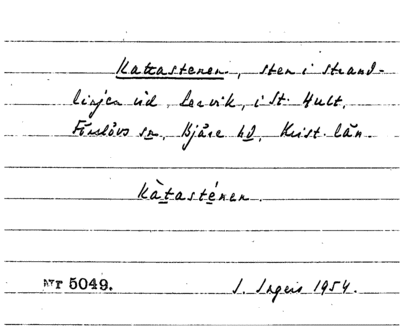 Kattastenen, sten i strand-
linjen vid Lervik, i St. Hult,
Förslövs sn, Bjäre hd, Krist. län.
Kàtasténen.
Nr 5049.
S. Ingers 1954.